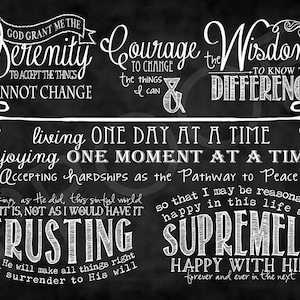 GOD GRANT ME THE
Serenity
TO ACCEPT THE THINGS
NNOT CHANGE
Courage
TO CHANGE
the THINGS
I can &
the Wisdom
TO KNOW T
DIFFEREN
living ONE DAY AT A TIME
joying ONE MOMENT AT A TIM
ACCEPTING HARDSHIPS AS THE PATHWAY TO PEACE
ing, as He did, this sinful world
IT IS, NOT AS I WOULD HAVE IT
TRUSTING
He will make all things right
surrender to His will
so that I may be reasona
happy in this life
SUPREMEL
HAPPY WITH HI
forever and ever in the next